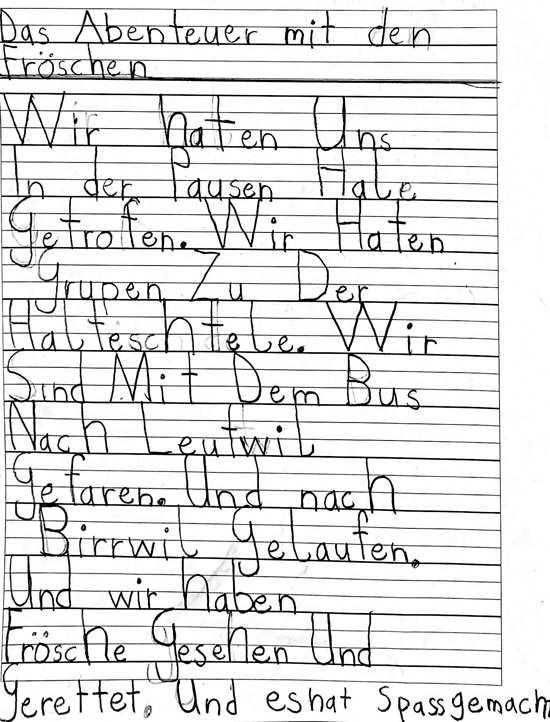 Das Abenteuer mit den
Fröschen
Wir haten Uns
In der Pausen Hale
Getrofen. Wir Haten
Grupen Zu Der
Halteschtele. Wir
Sind Mit Dem Bus
Nach Leutwil
Gefaren. Und nach
Birrwil Gelaufen.
Und wir haben
Frösche Gesehen Und
Gerettet. Und es hat Spass gemach